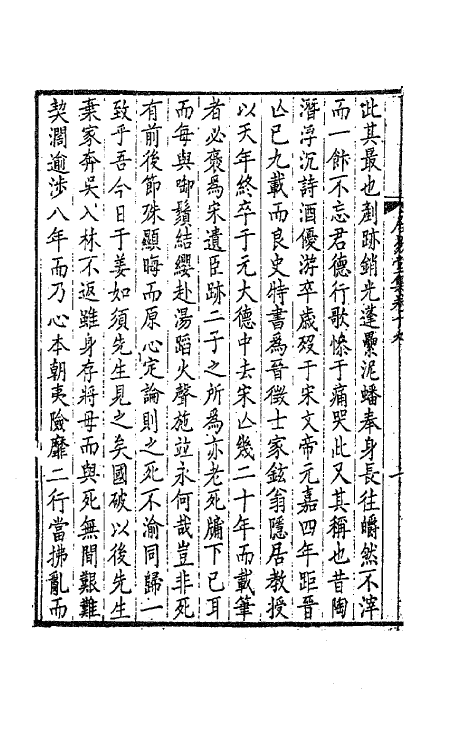 此其最也剷跡銷光蓬纍泥蟠奉身長往皭然不滓
而一飰不忘君德行歌慘于痛哭此又其稱也昔陶
潛浮沉詩酒優游卒歲歿于宋文帝元嘉四年距晉
亾已九載而良史特書爲晉徵士家鉉翁隱居教授
以天年終卒于元大德中去宋亾幾二十年而載筆
者必褒爲宋遺臣跡二子之所爲亦老死牖下已耳
而每與啣鬚結纓赴湯蹈火聲施竝永何哉豈非死
有前後節殊顯晦而原心定論則之死不渝同歸一
致乎吾今日于姜如須先生見之矣國破以後先生
棄家奔吳入林不返雖身存將母而與死無間艱難
契濶逾涉八年而乃心本朝夷險靡二行當拂亂而
堂集卷十
一